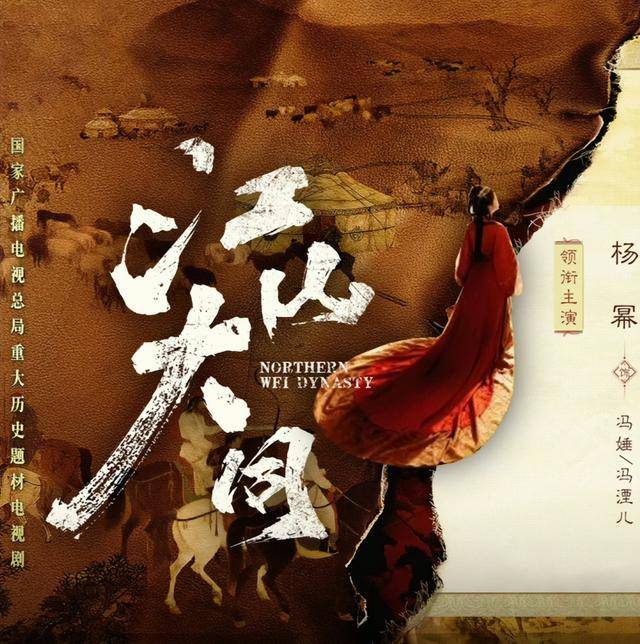 国家广播电视总局重大历史题材电视剧
江山
大同
NORTHERN
WEI DYNASTY
领衔主演
杨幂
饰
冯娷/冯湮儿